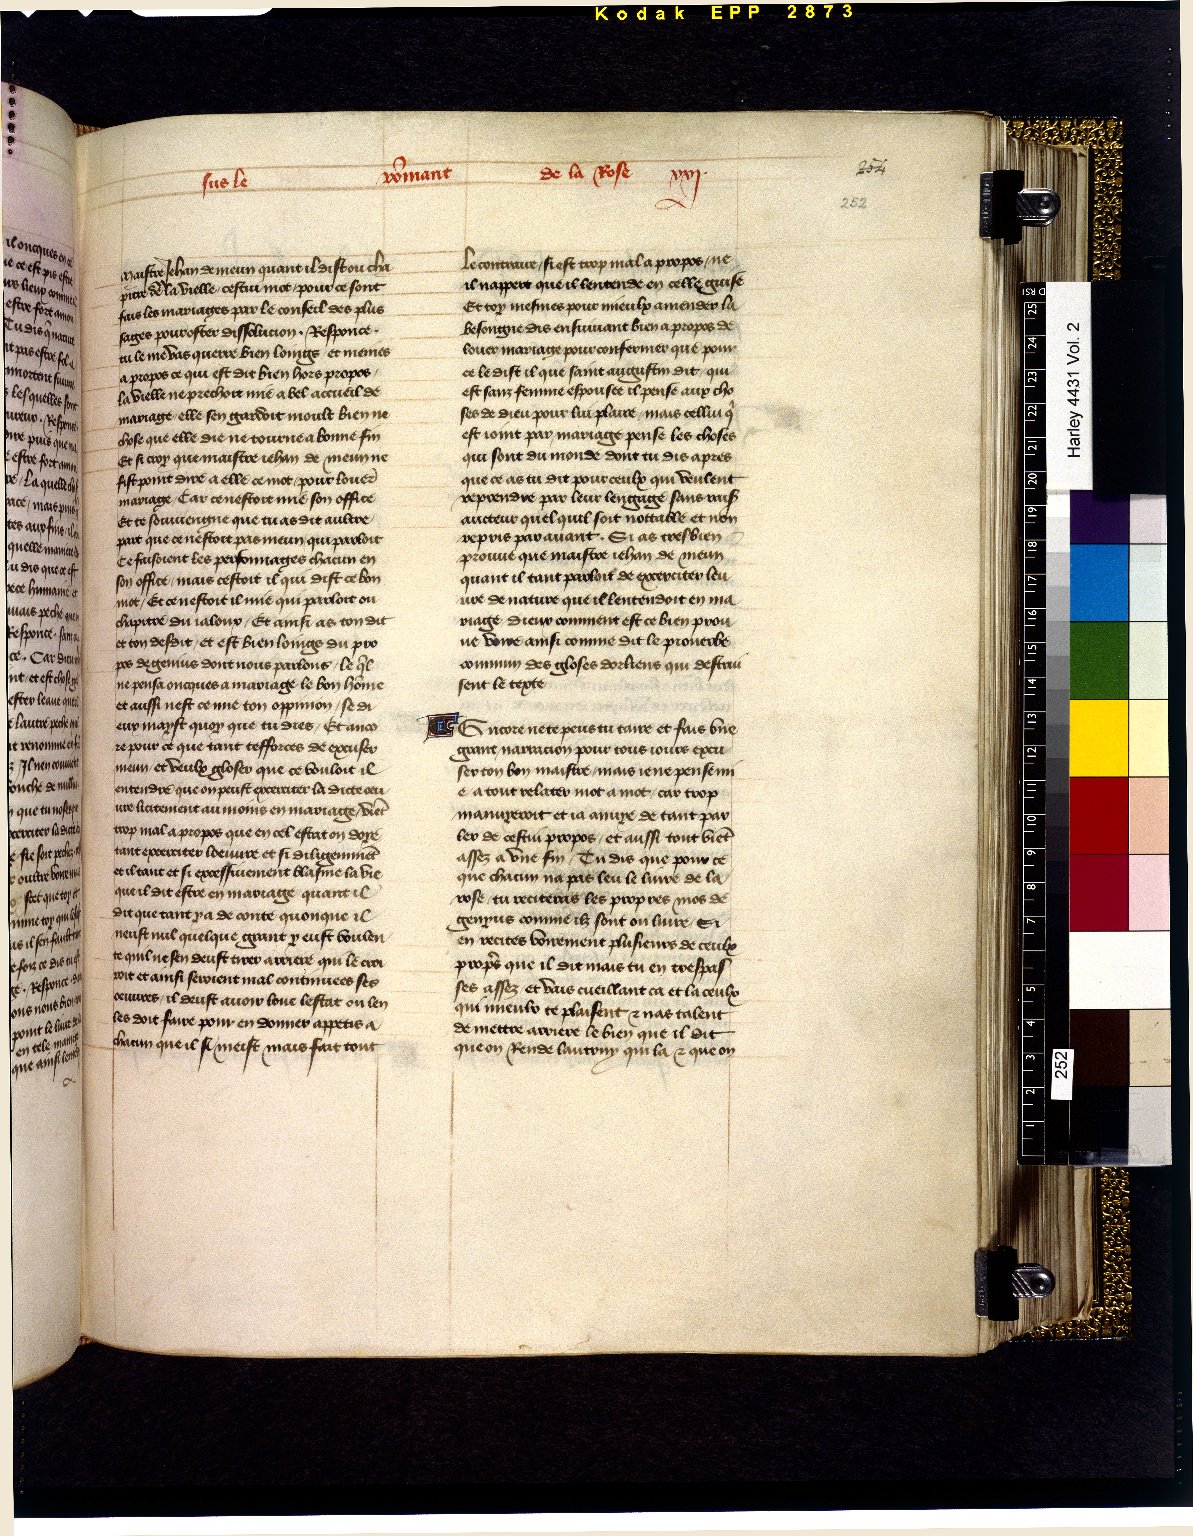 Kodak EPP 2873
sus le rommant de la Rose xxvj.
254
252
maistre Jehan de meun quant il dist ou cha
pitre de la vielle cestui mot / pour ce sont
fais les mariages par le conseil des plus
sages pour oster dissolucion . Responce .
tu le me vas querre bien loings / et meines
a propos ce qui est dit bien hors propos /
la vielle ne preschoit mie a bel accueil de
mariage / elle sen gardoit moult bien ne
chose que elle die ne tourne a bonne fin
Et si croy que maistre iehan de meun ne
fist point dire a elle ce mot / pour louer
mariage / Car ce nestoit mie son office
Et te souviengne que tu as dit aultre
part que ce nestoit pas meun qui parloit
Ce faisoient les personnages chacun en
son office / mais cestoit il qui dist ce bon
mot / Et ce nestoit il mie qui parloit ou
chapitre du ialoux / Et ainsi as ton dit
et ton desdit / et est bien loings du pro
pos de genius dont nous parlons / le ql
ne pensa oncques a mariage le bon home
et aussi nest ce mie ton oppinion / se di
eux mayst quoy que tu dies / Et anco
re pour ce que tant tefforces de excuser
meun / et veulx gloser que ce vouloit il
entendre que on peust excerciter la dicte oeu
vre licitement au moins en mariage / vient
trop mal a propos que en cel estat on doye
tant excerciter loeuvre et si diligemment
et il tant et si excessivement blasme la vie
que il dit estre en mariage quant il
dit que tant y a de conte quonque il
neust nul quelque grant y eust voulen
te quil ne sen deust tirer arriere qui le croi
roit et ainsi seroient mal continuees ses
oeuvres / il deust avoir loue lestat ou len
les doit faire pour en donner appetis a
chacun que il si meist / mais fait tout
le contraire / si est trop mal a propos / ne
il nappert que il lentende en celle guise
Et toy mesmes pour mieulx amender la
besongne dis ensuivant bien a propos de
louer mariage pour confermer que pour
ce le dist il que saint augustin dit / qui
est sanz femme espousee il pense aux cho
ses de dieu pour lui plaire / mais cellui q
est ioint par mariage pense les choses
qui sont du monde dont tu dis apres
que ce as tu dit pour ceulx qui veulent
reprendre par leur lengage sans rais
aucteur quel quil soit nottable et non
repris par avant . Si as tres bien
prouve que maistre iehan de meun
quant il tant parloit de excerciter leu
vre de nature que il lentendoit en ma
riage / dieux comment est ce bien prou
ve voire ainsi comme dit le proverbe
commun des gloses dorliens qui destrui
sent le texte
Encore ne te peus tu taire et fais une
grant narracion pour tous iours excu
ser ton bon maistre / mais ie ne pense mi
e a tout relater mot a mot / car trop
manuyeroit et ia anuye de tant par
ler de cestui propos / et aussi tout vient
assez a une fin / Tu dis que pour ce
que chacun na pas leu le livre de la
rose / tu reciteras les propres mos de
genyus comme ilz sont ou livre / Si
en recites voirement plusieurs de ceulx
propres que il dit mais tu en trespas
ses assez et vais cueillant ca et la ceulx
qui mieulx te plaisent / et nas talent
de mettre arriere le bien que il dit
que on Rende lautruy qui la / et que on
Harley 4431 Vol. 2
252